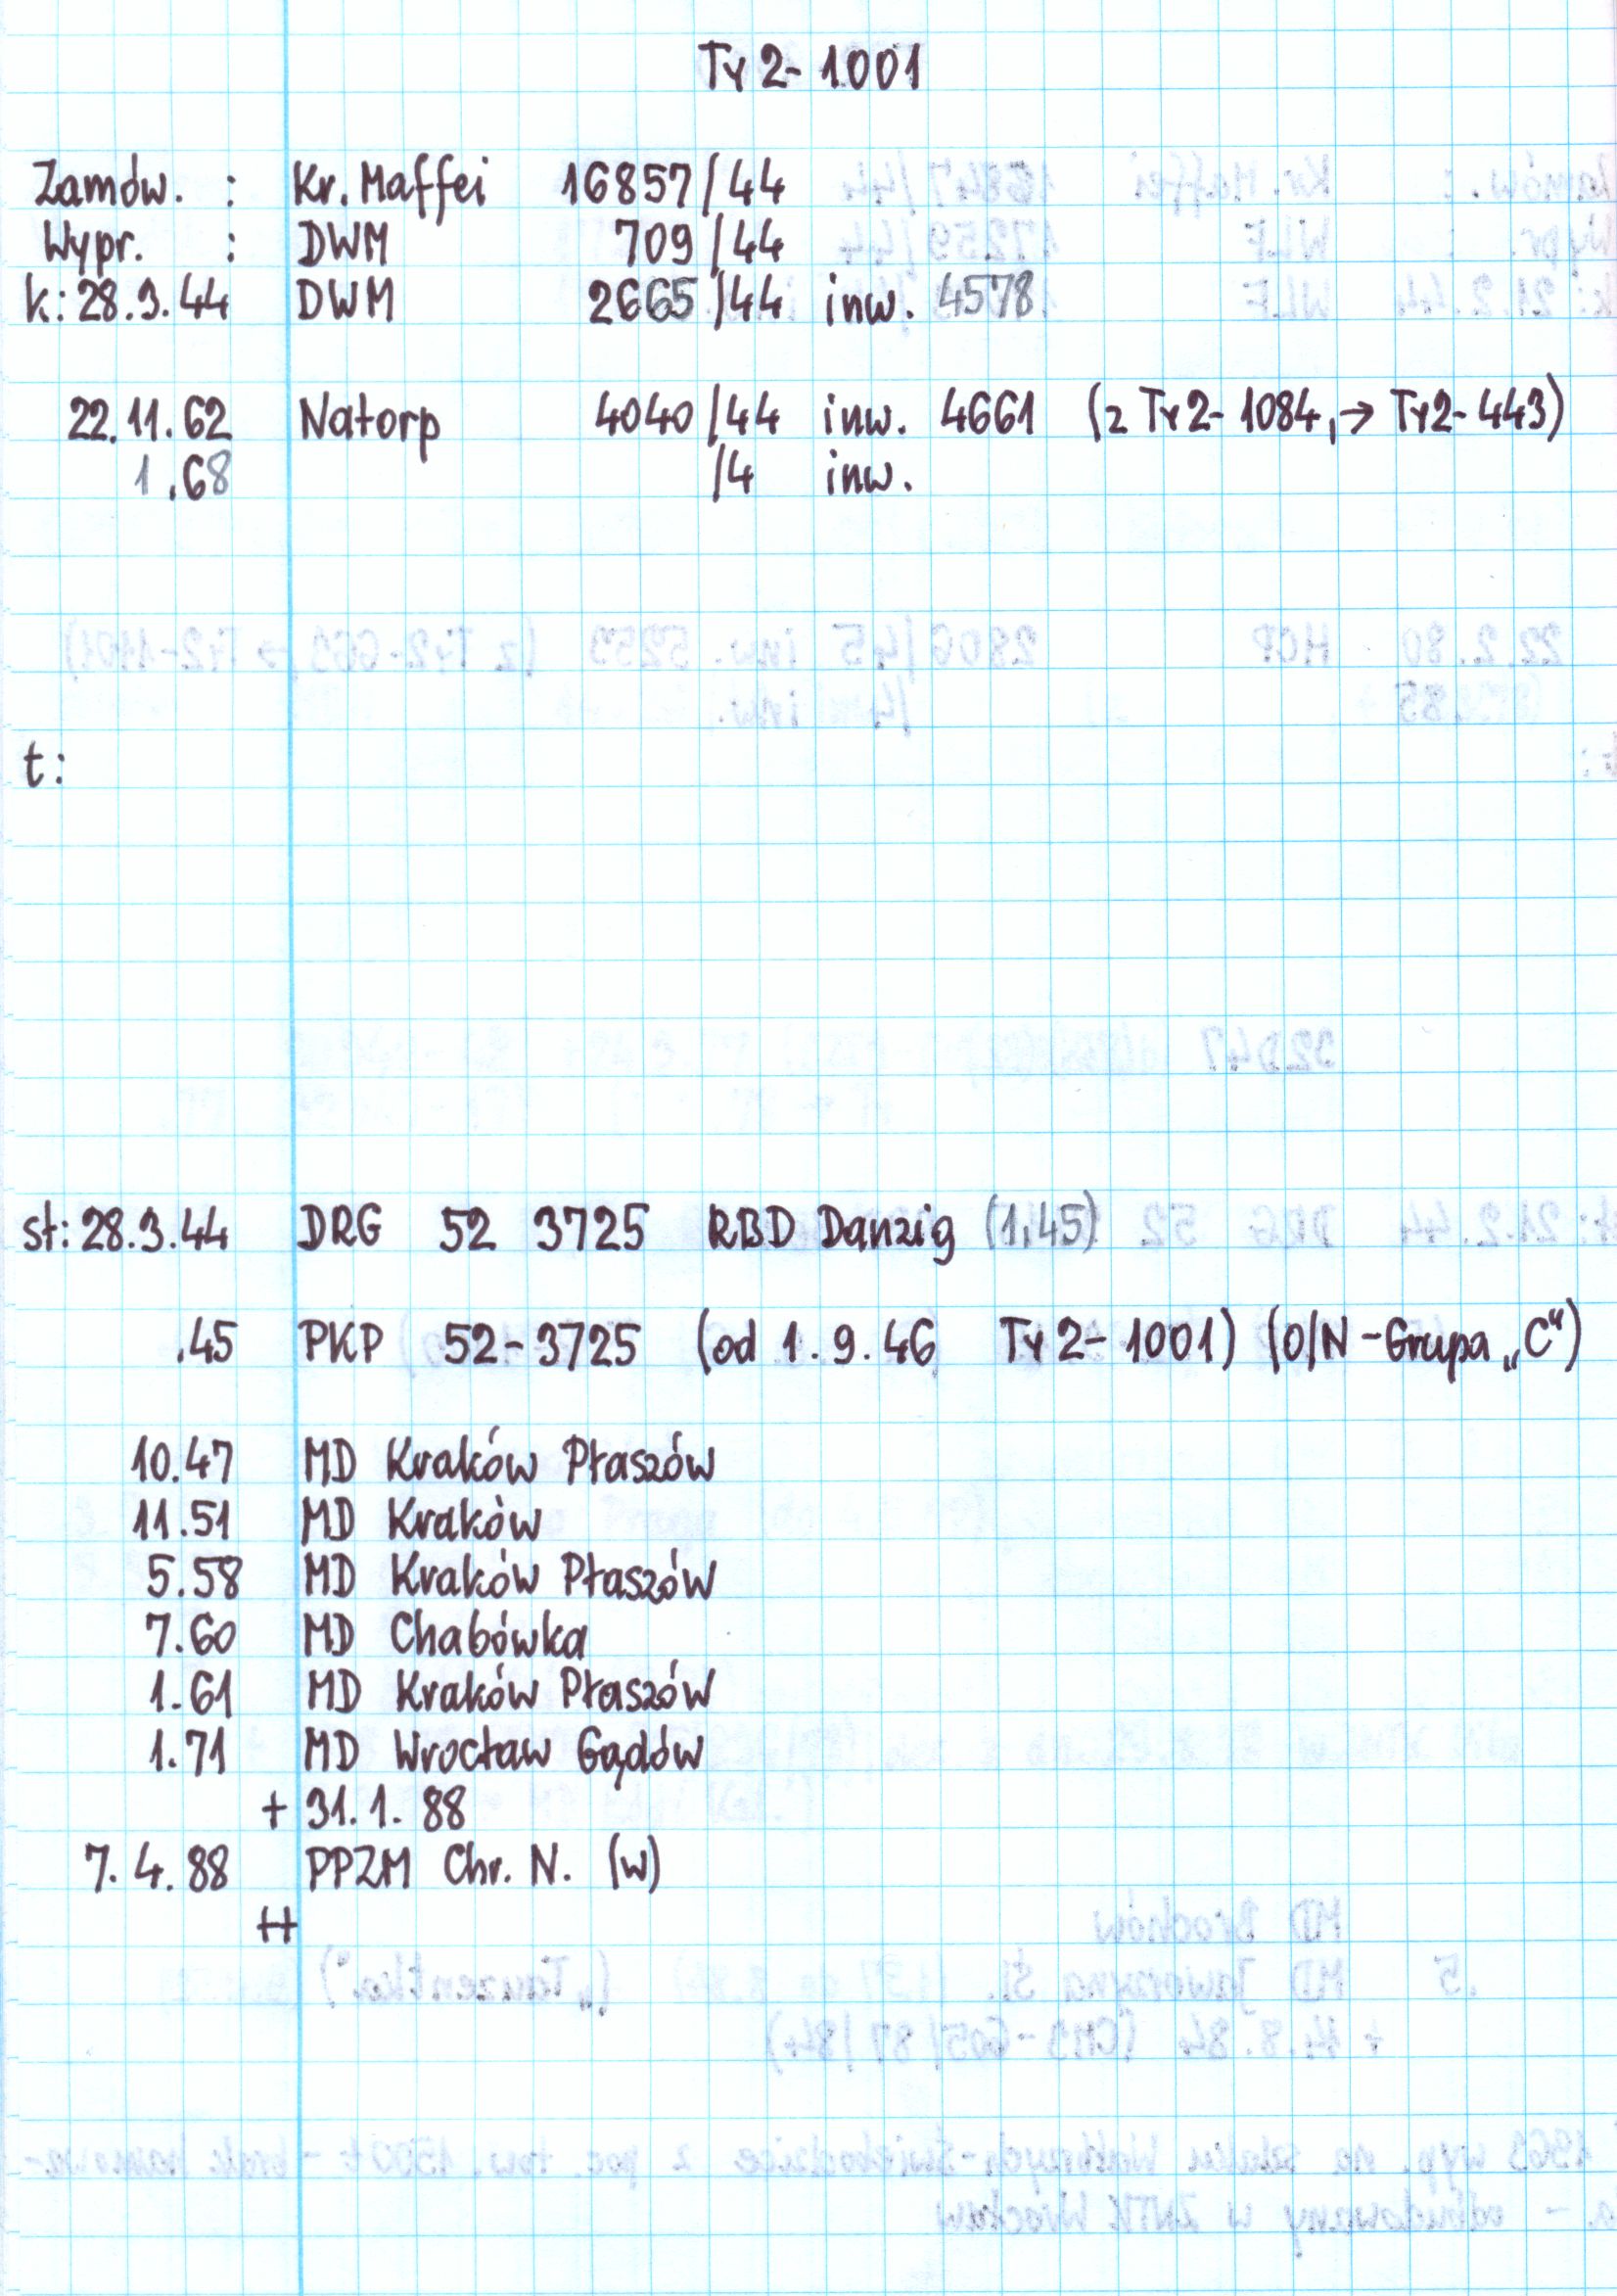 Ty2-1001
Zamów. : Kr. Maffei 16857/44
Wypr. : DWM 709/44
k: 28.3.44 DWM 2665/44 inw. 4578
22.11.62 Natorp 4040/44 inw. 4661 (z Ty2-1084, → Ty2-443)
1.68 /4 inw.
t:
st: 28.3.44 DRG 52 3725 RBD Danzig (1.45)
.45 PKP 52-3725 (od 1.9.46 Ty2-1001) (O/N-Grupa „C")
10.47 MD Kraków Płaszów
11.51 MD Kraków
5.58 MD Kraków Płaszów
7.60 MD Chabówka
1.61 MD Kraków Płaszów
1.71 MD Wrocław Gądów
+ 31.1.88
7.4.88 PPZM Chr. N. (w)
++